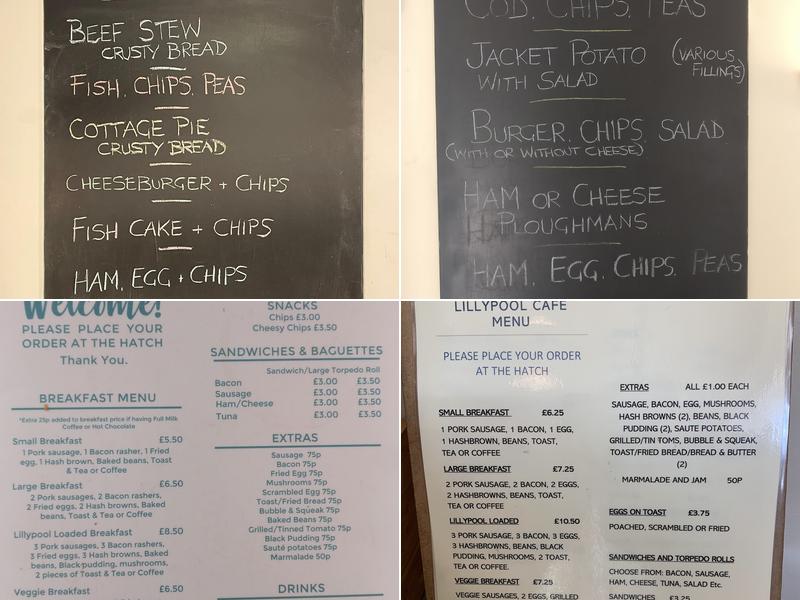 BEEF STEW
CRUSTY BREAD
FISH, CHIPS, PEAS
COTTAGE PIE
CRUSTY BREAD
CHEESEBURGER + CHIPS
FISH CAKE + CHIPS
HAM, EGG + CHIPS
COD, CHIPS, PEAS
JACKET POTATO (VARIOUS
WITH SALAD FILLINGS)
BURGER, CHIPS, SALAD
(WITH OR WITHOUT CHEESE)
HAM OR CHEESE
PLOUGHMANS
HAM, EGG, CHIPS, PEAS
Welcome!
PLEASE PLACE YOUR
ORDER AT THE HATCH
Thank You.
BREAKFAST MENU
*Extra 25p added to breakfast price if having Full Milk
Coffee or Hot Chocolate
Small Breakfast £5.50
1 Pork sausage, 1 Bacon rasher, 1 Fried
egg, 1 Hash brown, Baked beans, Toast
& Tea or Coffee
Large Breakfast £6.50
2 Pork sausages, 2 Bacon rashers,
2 Fried eggs, 2 Hash browns, Baked
beans, Toast & Tea or Coffee
Lillypool Loaded Breakfast £8.50
3 Pork sausages, 3 Bacon rashers,
3 Fried eggs, 3 Hash browns, Baked
beans, Black pudding, mushrooms,
2 pieces of Toast & Tea or Coffee
Veggie Breakfast £6.50
SNACKS
Chips £3.00
Cheesy Chips £3.50
SANDWICHES & BAGUETTES
Sandwich/Large Torpedo Roll
Bacon £3.00 £3.50
Sausage £3.00 £3.50
Ham/Cheese £3.00 £3.50
Tuna £3.00 £3.50
EXTRAS
Sausage 75p
Bacon 75p
Fried Egg 75p
Mushrooms 75p
Scrambled Egg 75p
Toast/Fried Bread 75p
Bubble & Squeak 75p
Baked Beans 75p
Grilled/Tinned Tomato 75p
Black Pudding 75p
Sauté potatoes 75p
Marmalade 50p
DRINKS
LILLYPOOL CAFE
MENU
PLEASE PLACE YOUR ORDER
AT THE HATCH
SMALL BREAKFAST £6.25
1 PORK SAUSAGE, 1 BACON, 1 EGG,
1 HASHBROWN, BEANS, TOAST,
TEA OR COFFEE
LARGE BREAKFAST £7.25
2 PORK SAUSAGE, 2 BACON, 2 EGGS,
2 HASHBROWNS, BEANS, TOAST,
TEA OR COFFEE
LILLYPOOL LOADED £10.50
3 PORK SAUSAGE, 3 BACON, 3 EGGS,
3 HASHBROWNS, BEANS, BLACK
PUDDING, MUSHROOMS, 2 TOAST,
TEA OR COFFEE.
VEGGIE BREAKFAST £7.25
VEGGIE SAUSAGES, 2 EGGS, GRILLED
EXTRAS ALL £1.00 EACH
SAUSAGE, BACON, EGG, MUSHROOMS,
HASH BROWNS (2), BEANS, BLACK
PUDDING (2), SAUTE POTATOES,
GRILLED/TIN TOMS, BUBBLE & SQUEAK,
TOAST/FRIED BREAD/BREAD & BUTTER
(2)
MARMALADE AND JAM 50P
EGGS ON TOAST £3.75
POACHED, SCRAMBLED OR FRIED
SANDWICHES AND TORPEDO ROLLS
CHOOSE FROM: BACON, SAUSAGE,
HAM, CHEESE, TUNA, SALAD Etc.
SANDWICHES £3.25